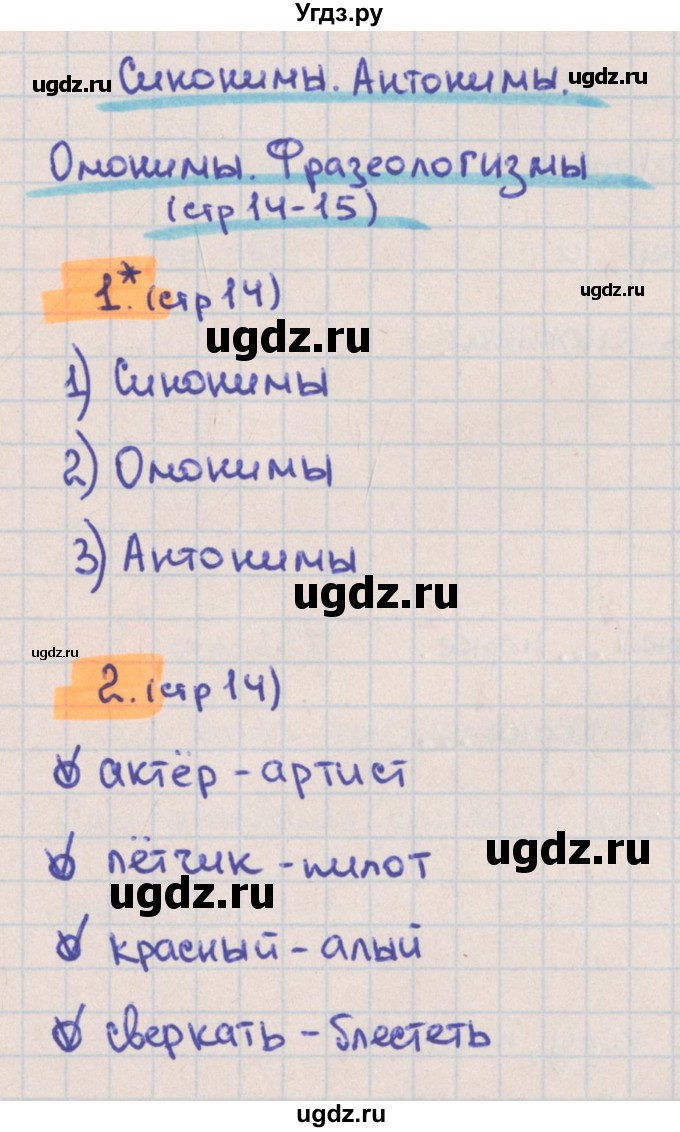 Угдз.ру
ugdz.ru
Синонимы. Антонимы.
ugdz.ru
Омонимы. Фразеологизмы
(стр 14-15)
1.* (стр 14)
ugdz.ru
ugdz.ru
1) Синонимы
2) Омонимы
3) Антонимы
ugdz.ru
ugdz.ru
2. (стр 14)
актёр - артист
ugdz.ru
лётчик - пилот
ugdz.ru
красный - алый
сверкать - блестеть
ugdz.ru